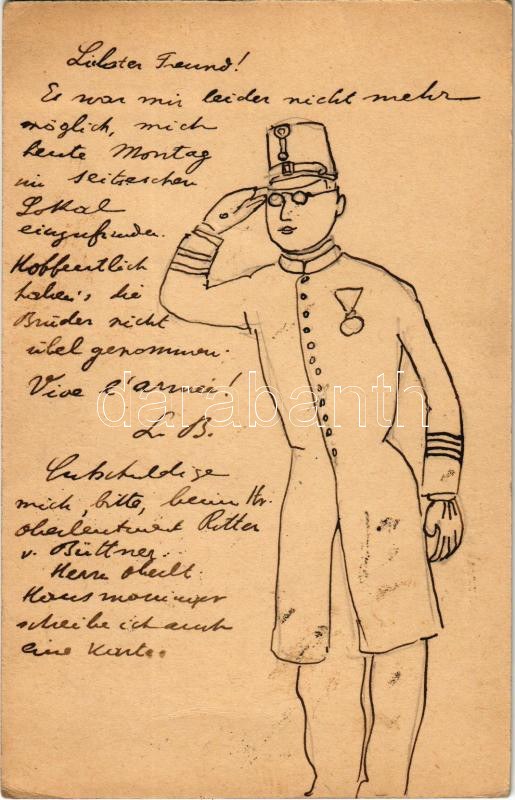 Liebster Freund!
Es war mir leider nicht mehr
möglich, mich
heute Montag
im
Lokal
einzufinden.
Hoffentlich
haben's die
Brüder nicht
übel genommen.
Vive l'armée!
L. B.
Entschuldige
mich, bitte, beim Hr.
Oberleutnant Ritter
v. Büttner.
Herrn Oberlt.
Hausmaninger
schreibe ich auch
eine Karte.
darabanth